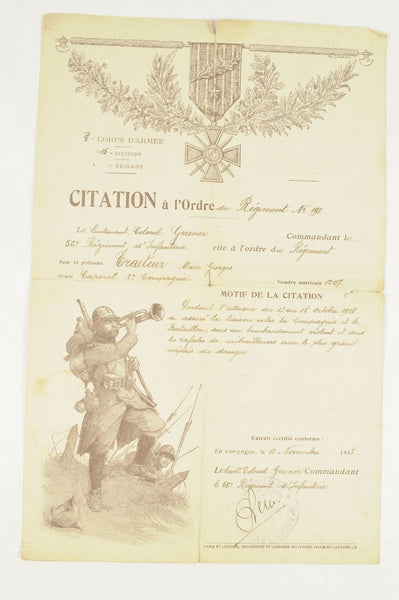 8e CORPS D'ARMÉE
15e DIVISION
BRIGADE
CITATION à l'Ordre du Régiment No 191
Le Lieutenant Colonel Greiner Commandant le
56e Régiment d'Infanterie cite à l'ordre du Régiment
Nom et prénoms Marc Georges
Grade Caporal 2e Compagnie Numéro matricule
MOTIF DE LA CITATION
Pendant l'attaque du 15 au 18 Octobre 1918
a assuré la liaison entre la Compagnie et le
Bataillon, sous un bombardement violent et sous
les rafales de mitrailleuses avec le plus grand
mépris du danger
Extrait certifié conforme :
En campagne, le Novembre 1918
Le Lieut. Colonel Greiner Commandant
le 56e Régiment d'Infanterie
PARIS ET LIMOGES, IMPRIMERIE ET LIBRAIRIE MILITAIRES CHARLES-LAVAUZELLE